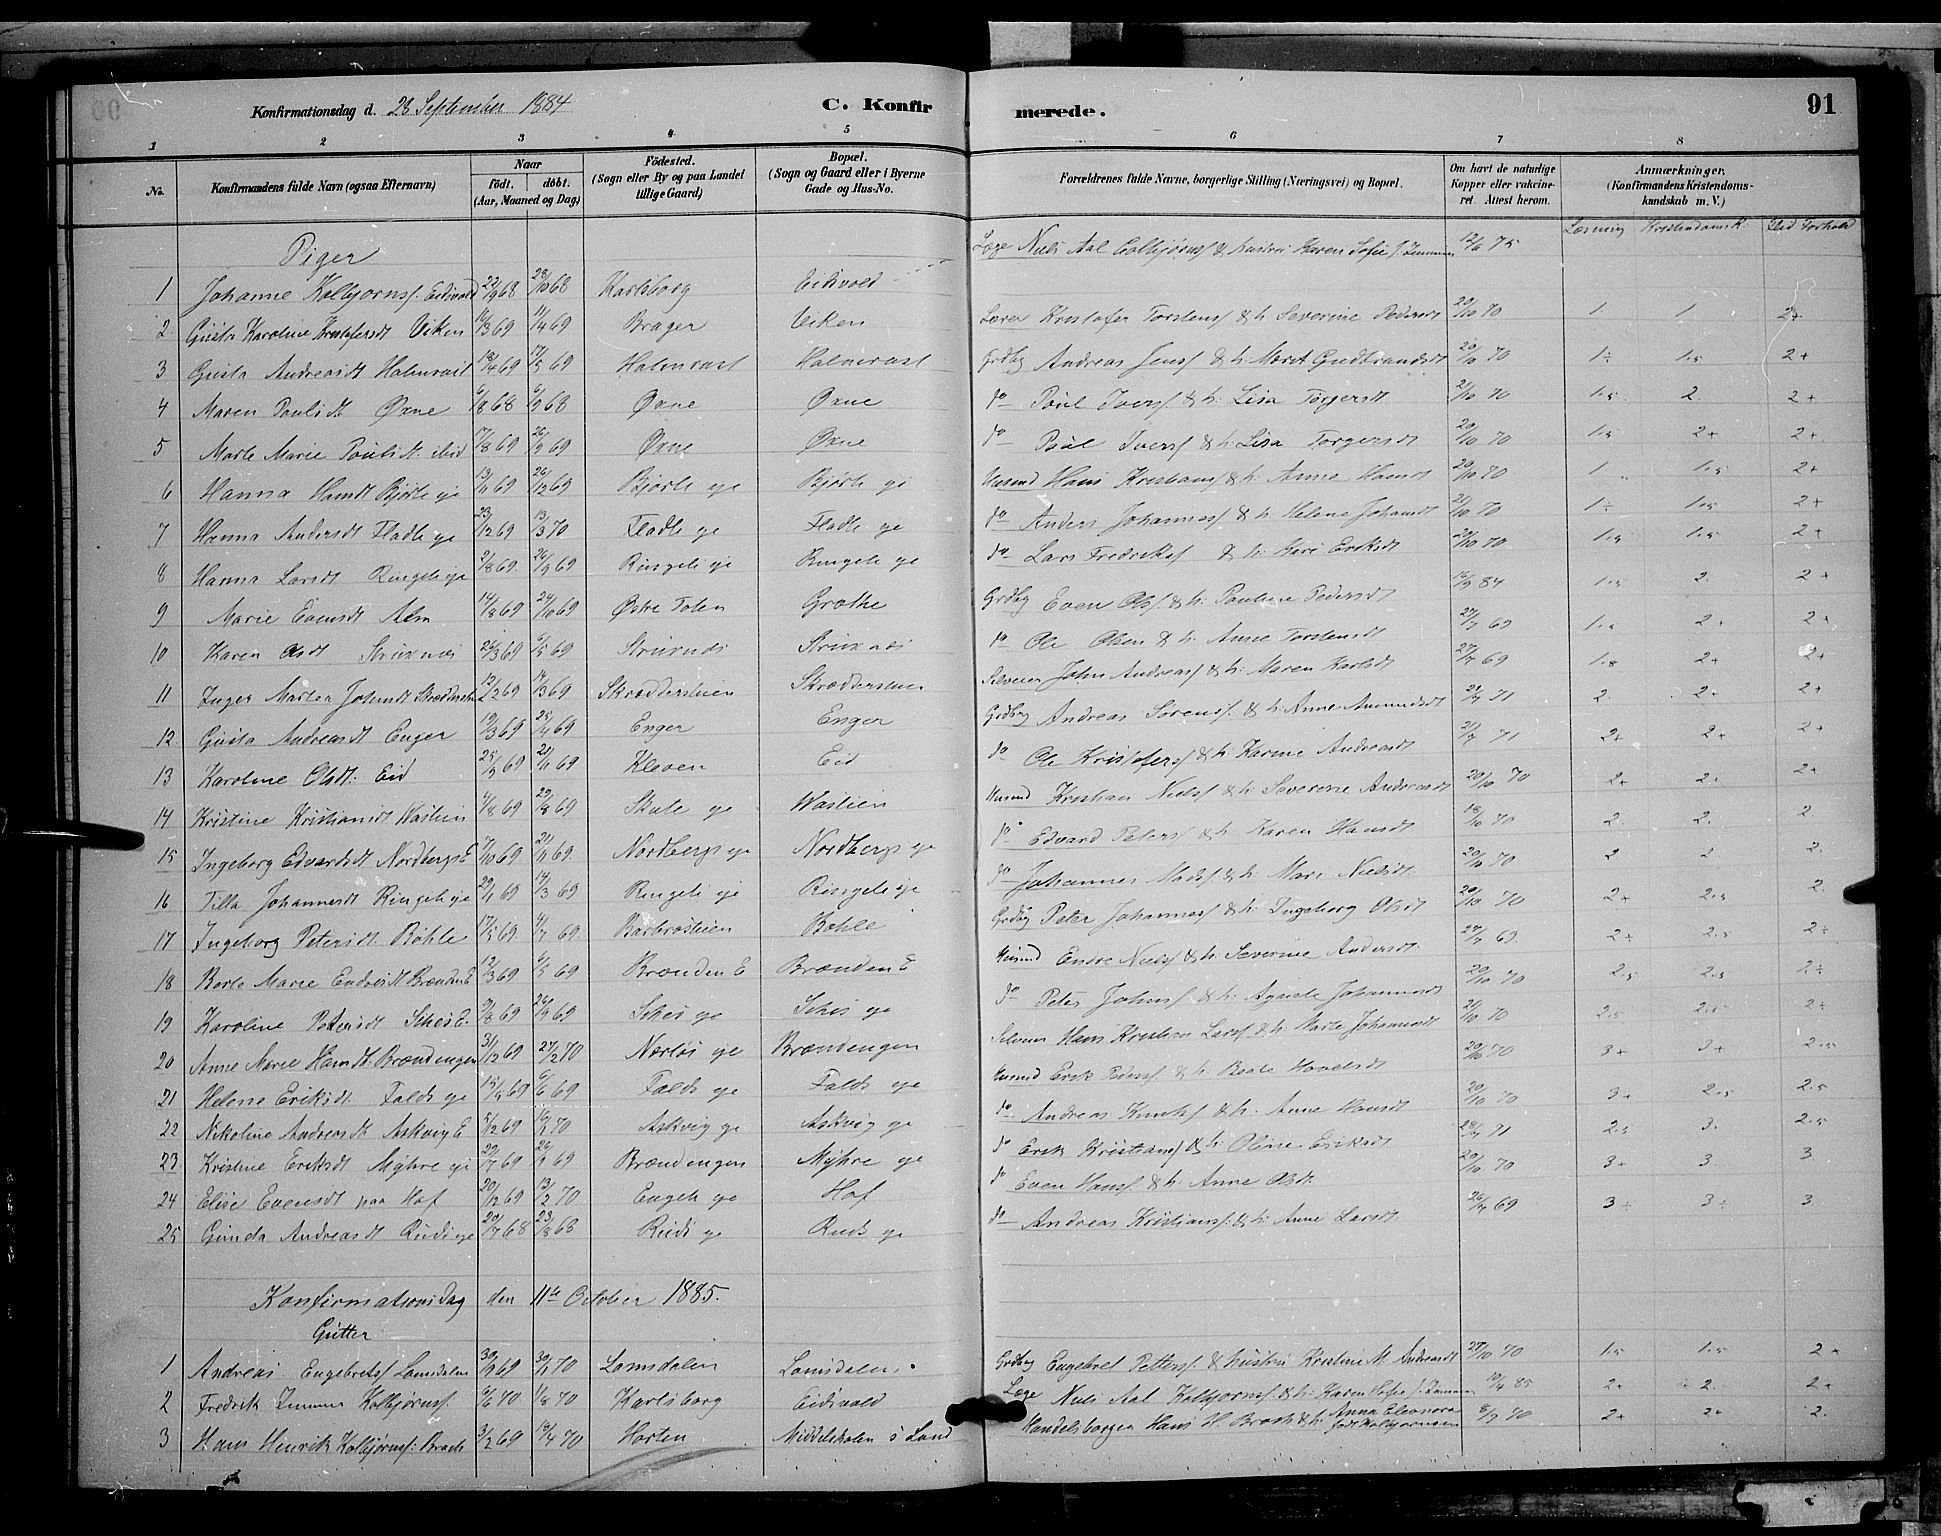 Konfirmationsdag d. 28 September 1884 C. Konfir merede. 91
1 2 3 4 5 6 7 8
No.
Konfirmandens fulde Navn (ogsaa Efternavn)
Naar
födt. döbt.
(Aar, Maaned og Dag)
Födested.
(Sogn eller By og paa Landet
tillige Gaard)
Bopæl.
(Sogn og Gaard eller i Byerne
Gade og Hus-No.
Forældrenes fulde Navne, borgerlige Stilling (Næringsvei) og Bopæl.
Om havt de naturlige
Kopper eller vakcine-
ret Attest herom.
Anmærkninger.
(Konfirmandens Kristendoms-
kundskab m. V.)
Læsning Kristendomsk. Flid Forhold
Piger
1 Johanne Kolbjørnsf. Eidsvold 22/9 68 28/10 68 Karlsborg Eidsvold Læge Niels Aal Colbjørnsf & hustrue Karen Sofie f. Zimmer 12/6 75
2 Gusta Karoline Kristofersdt Viken 16/3 69 11/4 69 Brager Viken Lærer Kristofer Torstensf & h. Severine Pedersdt 20/10 70 1. 1 2+
3 Gusta Andreasdt Halmrast 18/4 69 17/5 69 Halmrast Halmrast Grdbg Andreas Jensf & h. Marit Gudbrandsdt 20/10 70 1÷ 1.5 2+
4 Maren Paulsdt Øxne 6/8 68 6/9 68 Øxne Øxne do Paul Iversf & h. Lisa Torgersdt 21/10 70 1.5 2. 2+
5 Marte Marie Paulsdt ibid 17/8 69 26/9 69 Øxne Øxne do Paul Iversf & h. Lisa Torgersdt 20/10 70 1.5 2+ 2+
6 Hanna Hansdt Bjørle eje 13/11 69 26/12 69 Bjørle eje Bjørle ej Husmd Hans Kristiansf & h. Anne Hansdt 20/10 70 1 1.5 2+
7 Hanna Andersdt Fladle eje 23/12 69 13/3 70 Fladle eje Fladle eje do Anders Johannesf & h. Helene Johansdt 20/10 70 1÷ 1.5 2+
8 Hanna Larsdt Ringeli eje 2/8 69 26/9 69 Ringeli eje Ringeli eje do Lars Fredriksf & h. Kari Eriksdt 20/10 70 1.5 1.5 2+
9 Marie Evensdt Alm 14/8 69 24/10 69 Østre Toten Grøthe Grdbg Even Olsf. & h. Pauline Pedersdt 16/9 84 1.5 2. 2+
10 Karen Olsdt Struxnæs 26/3 69 6/5 69 Struxnæs Struxnæs do Ole Olsen & h. Anne Torstensdt 27/7 69 1.5 2+ 2+
11 Inger Martea Johnsdt Skrædderstuen 12/2 69 14/3 69 Skrædderstuen Skrædderstuen Selveier John Andreasf & h. Maren Karlsdt 27/7 69 1.8 2+ 2+
12 Gusta Andreasdt Enger 19/3 69 25/4 69 Enger Enger Grdbg Andreas Sørensf. & h. Anne Amundsdt 21/7 71 2. 2+ 2+
13 Karoline Olsdt: Eid 25/9 69 21/11 69 Kleven Eid do Ole Kristofersf & h. Karine Andreasdt 21/7 71 2+ 2+ 2+
14 Kristine Kristiansdt Wastien 4/8 69 29/8 69 Skute eje Wastien Husmd Kristian Nielsf & h. Severine Andreasdt 20/10 70 2+ 2+ 2+
15 Ingeborg Edvardsdt Nordbergs E. 7/10 69 21/11 69 Nordbergs eje Nordbergs eje do Edvard Petersf & h. Karen Hansdt 18/10 70 2. 2. 2
16 Tilla Johannesdt Ringeli eje 29/1 69 14/3 69 Ringeli eje Ringeli eje do Johannes Madsf & h. Mari Nielsdt 20/10 70 2 2 2.
17 Ingeborg Petersdt Bøhle 17/5 69. 4/7 69. Barbrostuen Bøhle Grdbg Peter Johannesf & h. Ingeborg Olsdt 20/10 70 2+ 2.5 2.
18 Berte Marie Endresdt Brænden E 12/3 69 6/5 69 Brænden E Brænden E Husmd Endre Nielsf & h. Severine Andersdt. 27/7 69. 2÷ 2.5 2÷
19 Karoline Petersdt Schei E. 9/8 69 26/9 69 Schei eje Schei eje do Peter Johnsf & h. Agnete Johannesdt 20/10 70 2.5 2.5 2÷
20 Anne Marie Hansdt Brændengen 31/12 69 27/2 70 Nærløs eje Brændengen Selveier Hans Kristian Larsf & h. Marte Johannesdt 21/10 70 2.5 2.5 2÷
21 Helene Eriksdt. Falds eje 15/4 69 6/6 69 Falds eje Falds eje Husmd Erik Pedersf & h. Beate Hovelsdt 20/10 70 3+ 3+ 2.5
22 Nikoline Andreasdt Askvig E 5/12 69 16/1 70 Askvig eje Askvig eje do Andreas Knutsf & h. Anne Hansdt 20/10 70 3+ 2.5 2.5
23. Kristine Eriksdt Myhre eje 29/7 69 26/9 69 Brændengen Myhre eje do Erik Kristiansf & h. Oline Eriksdt 28/7 71 2.5 3. 2.5
24 Elise Evensdt paa Hof 20/12 69 13/2 70 Engeli eje Hof do Even Hansf. & h. Anne Olsdt. 20/10 70 3+ 3 3.
25 Gunda Andreasdt Ruds eje 20/7 68 23/8 68 Ruds eje Ruds eje do Andreas Kristiansf. & h. Anne Larsdt. 26/7 69 3÷ 3÷ 3
Konfirmationsdag den 11te October 1885.
Gutter
1 Andreas Engebretsf Lomsdalen 30/9 69 30/1 70 Lomsdalen Lomsdalen. Grdbg Engebret Pettersf. & hustru Kristine M. Andreasdt 27/10 70 1.5 1.5 2+
2 Fredrik Zimmer Kolbjørnsf. 9/6 70 1/8 70 Karlsborg Eidsvold Læge Niels Aal Kolbjørnsf. & h. Karen Sofie f. Zimmer 10/4 85 2+ 2. 2+
3 Hans Henrik Kolbjørnsf: Broch 3/12 69 13/4 70 Horten Middelskolen i Land Handelsborger Hans H. Broch & h. Anna Eleonora født Kolbjørnsen 8/7 70 2+ 2+ 2.